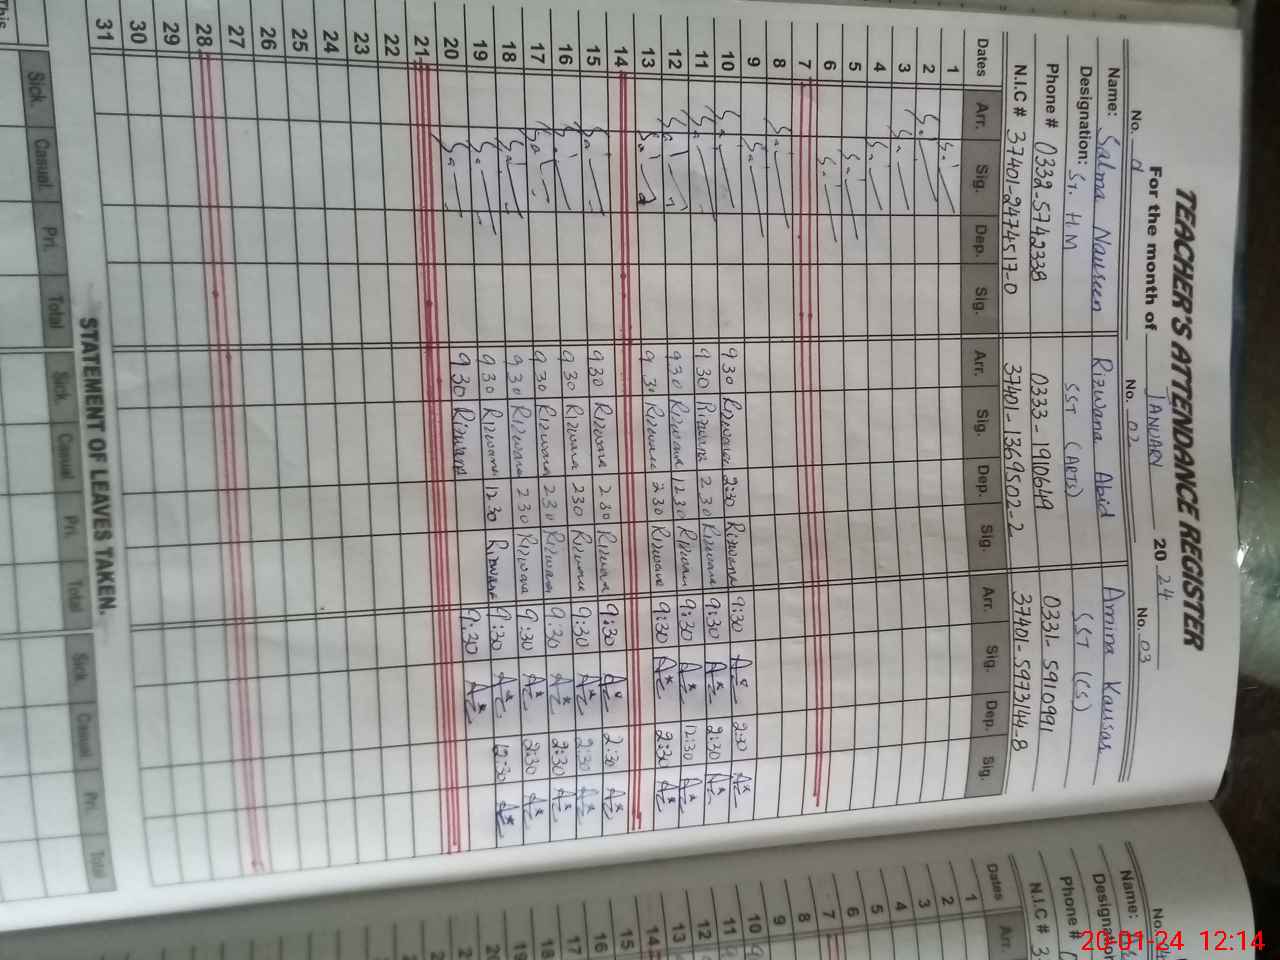 TEACHER'S ATTENDANCE REGISTER
For the month of JANUARY 20 24
No. No. 02 No. 03
Name: Salma Naureen Rizwana Abid Amina Kausar
Designation: Sr. H.M SST (ARTS) SST (CS)
Phone # 0332-5742338 0333-1910649 0331-5910991
N.I.C # 37401-2474517-0 37401-1369502-2 37401-5973144-8
Dates Arr. Sig. Dep. Sig. Arr. Sig. Dep. Sig. Arr. Sig. Dep. Sig.
1
2
3
4
5
6
7
8
9
10 9 30 Rizwana 2:30 Rizwana 9:30 2:30
11 9 30 Rizwana 2 30 Rizwana 9:30 2:30
12 9 30 Rizwana 12 30 Rizwana 9:30 12:30
13 9 30 Rizwana 2 30 Rizwana 9:30 2:30
14
15 9 30 Rizwana 2 30 Rizwana 9:30 2:30
16 9 30 Rizwana 2 30 Rizwana 9:30 2:30
17 9 30 Rizwana 2 30 Rizwana 9:30 2:30
18 9 30 Rizwana 2 30 Rizwana 9:30 2:30
19 9 30 Rizwana 12 30 Rizwana 9:30 12:30
20 9 30 Rizwana 9:30
21
22
23
24
25
26
27
28
29
30
31
STATEMENT OF LEAVES TAKEN.
Sick. Casual. Pri. Total Sick. Casual Pri. Total Sick. Casual Pri. Total
This
No.
Name:
Designation
Phone #
N.I.C # 3
Dates Arr.
1
2
3
4
5
6
7
8
9
10
11
12
13
14
15
16
17
18
19
20-01-24 12:14